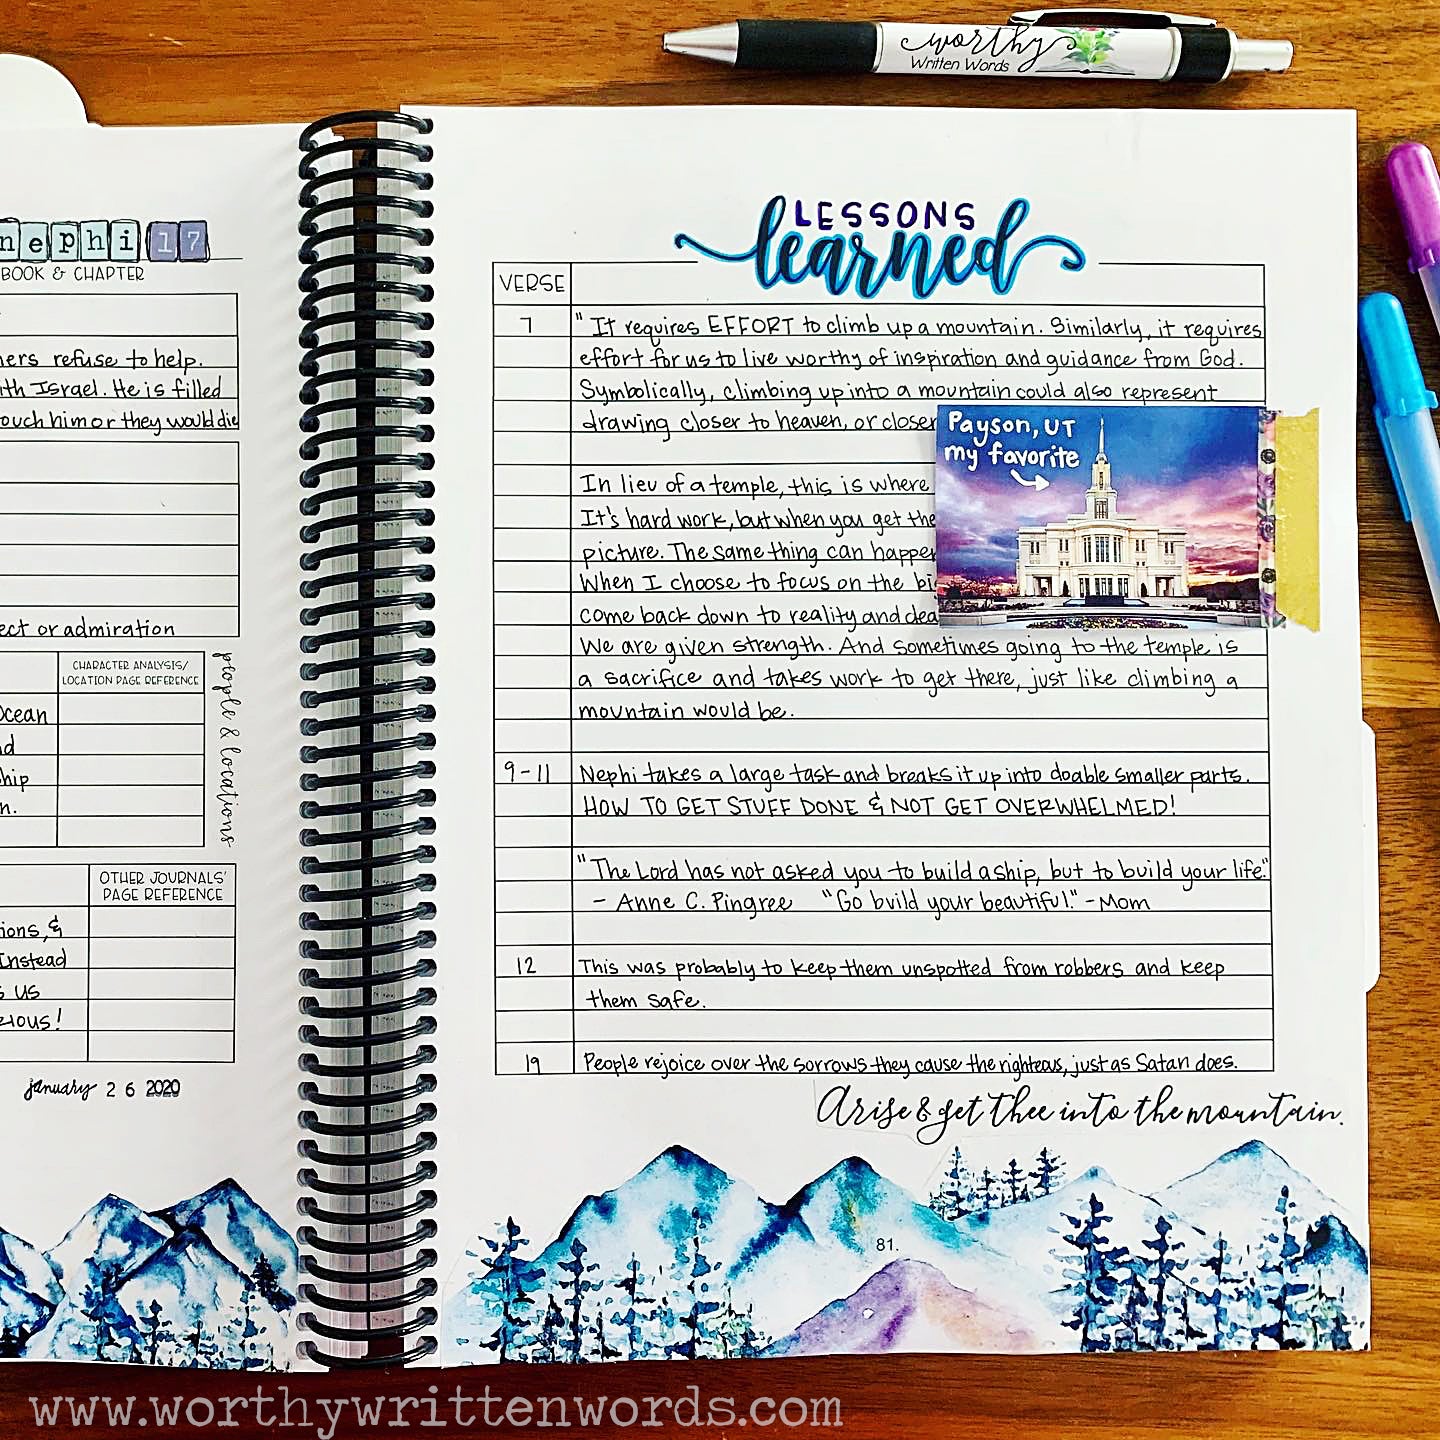 worthy
Written Words
nephi 17
BOOK & CHAPTER
ners refuse to help.
ith Israel. He is filled
ouch him or they would die
ect or admiration
CHARACTER ANALYSIS/
LOCATION PAGE REFERENCE
Ocean
nd
ship
n.
people & locations
OTHER JOURNALS'
PAGE REFERENCE
ions, &
Instead
s us
rious!
january 26 2020
LESSONS
learned
VERSE
7 "It requires EFFORT to climb up a mountain. Similarly, it requires
effort for us to live worthy of inspiration and guidance from God.
Symbolically, climbing up into a mountain could also represent
drawing closer to heaven, or closer
Payson, UT
my favorite
In lieu of a temple, this is where
It's hard work, but when you get the
picture. The same thing can happen
When I choose to focus on the big
come back down to reality and dea
We are given strength. And sometimes going to the temple is
a sacrifice and takes work to get there, just like climbing a
mountain would be.
9-11 Nephi takes a large task and breaks it up into doable smaller parts.
HOW TO GET STUFF DONE & NOT GET OVERWHELMED!
"The Lord has not asked you to build a ship, but to build your life."
- Anne C. Pingree "Go build your beautiful." - Mom
12 This was probably to keep them unspotted from robbers and keep
them safe.
19 People rejoice over the sorrows they cause the righteous, just as Satan does.
Arise & get thee into the mountain.
81.
www.worthywrittenwords.com